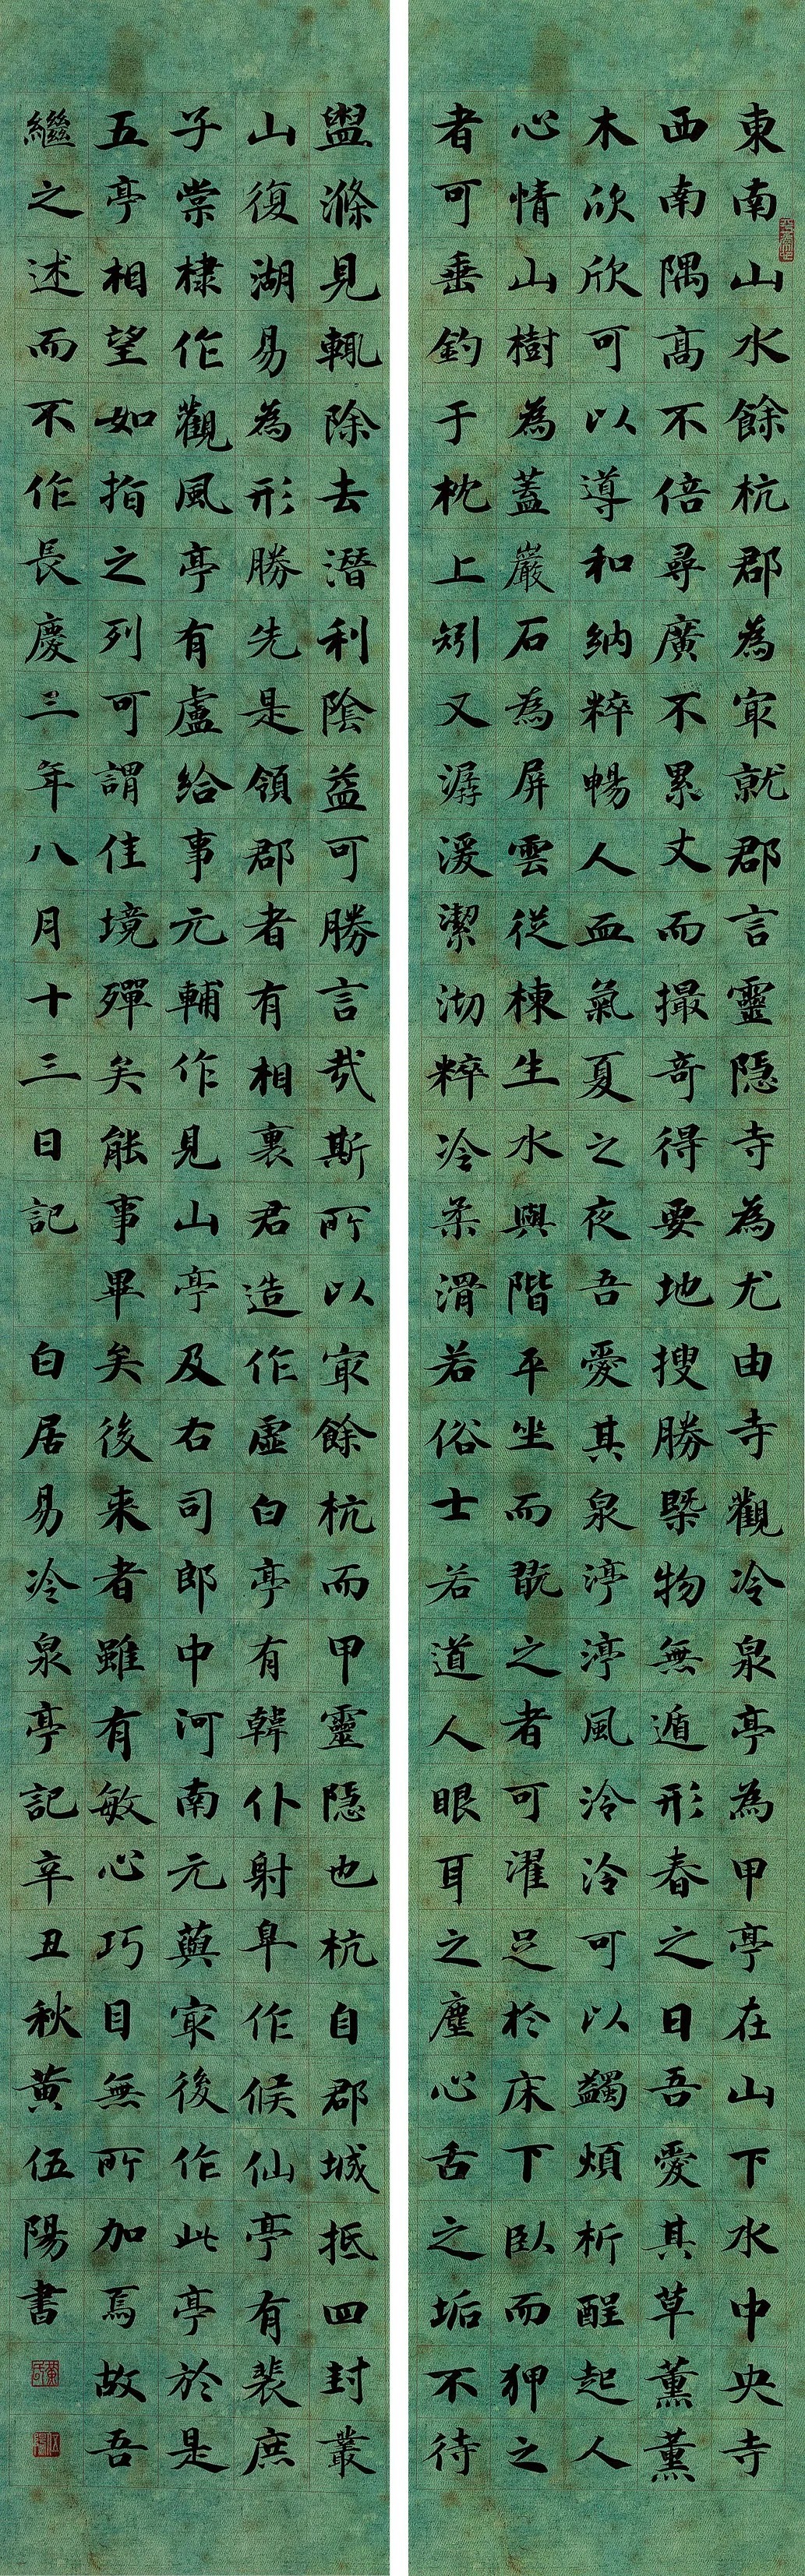 東南山水餘杭郡為冣就郡言靈隱寺為尤由寺觀冷泉亭為甲亭在山下水中央寺
西南隅高不倍尋廣不累丈而撮奇得要地搜勝槩物無遁形春之日吾愛其草薰薰
木欣欣可以導和納粹暢人血氣夏之夜吾愛其泉渟渟風泠泠可以蠲煩析酲起人
心情山樹為蓋巖石為屏雲從棟生水與階平坐而翫之者可濯足於床下臥而狎之
者可垂釣于枕上矧又潺湲潔沏粹冷柔滑若俗士若道人眼耳之塵心舌之垢不待
盥滌見輒除去潛利陰益可勝言哉斯所以冣餘杭而甲靈隱也杭自郡城抵四封叢
山復湖易為形勝先是領郡者有相裏君造作虛白亭有韓仆射皐作候仙亭有裴庶
子棠棣作觀風亭有盧給事元輔作見山亭及右司郎中河南元藇冣後作此亭於是
五亭相望如指之列可謂佳境殫矣能事畢矣後来者雖有敏心巧目無所加焉故吾
繼之述而不作長慶三年八月十三日記 白居易冷泉亭記辛丑秋黃伍陽書